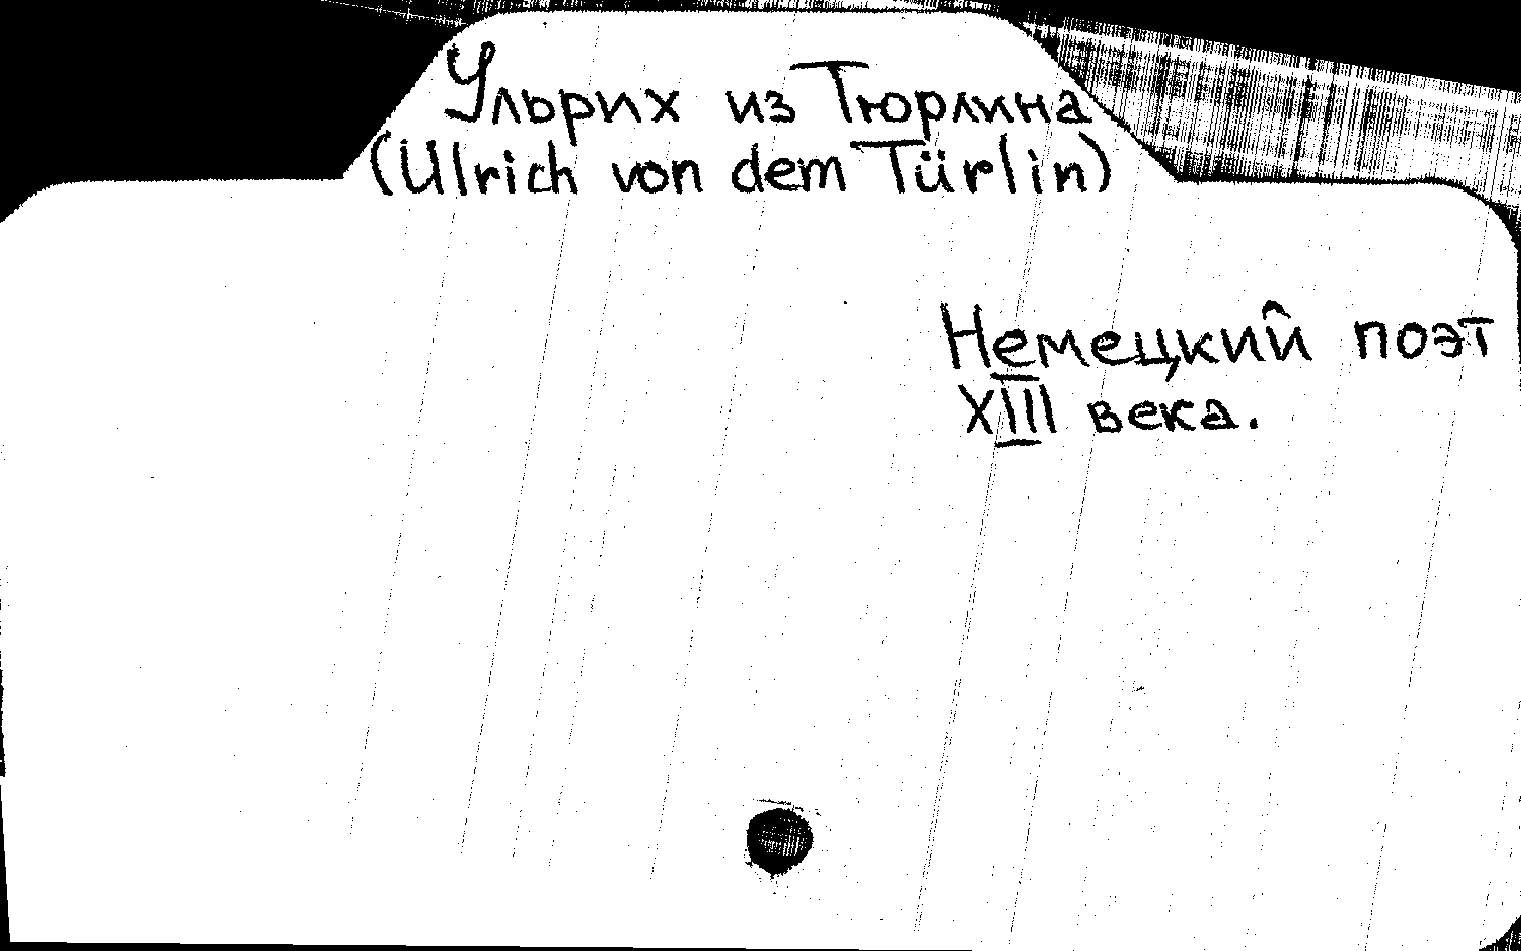 Ульрих из Тюрлина
(Ulrich von dem Türlin)
Немецкий поэт
XIII века.